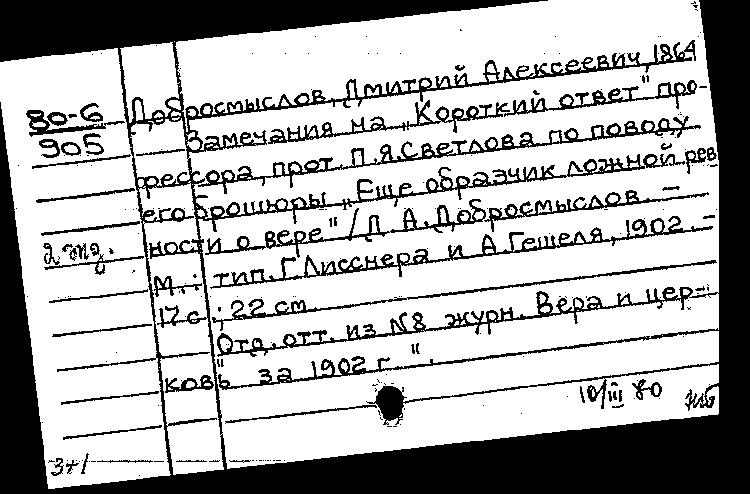 80-6
905
2 экз.
Добросмыслов, Дмитрий Алексеевич, 1864
Замечания на „Короткий ответ" про-
фессора, прот. П.Я.Светлова по поводу
его брошюры „Еще образчик ложной рев
ности о вере"/Д.А.Добросмыслов. –
М.: тип. Г.Лисснера и А.Гешеля, 1902. –
17 с.; 22 см
Отд. отт. из №8 журн. Вера и цер-
ковь" за 1902 г".
10/III 80
3+1